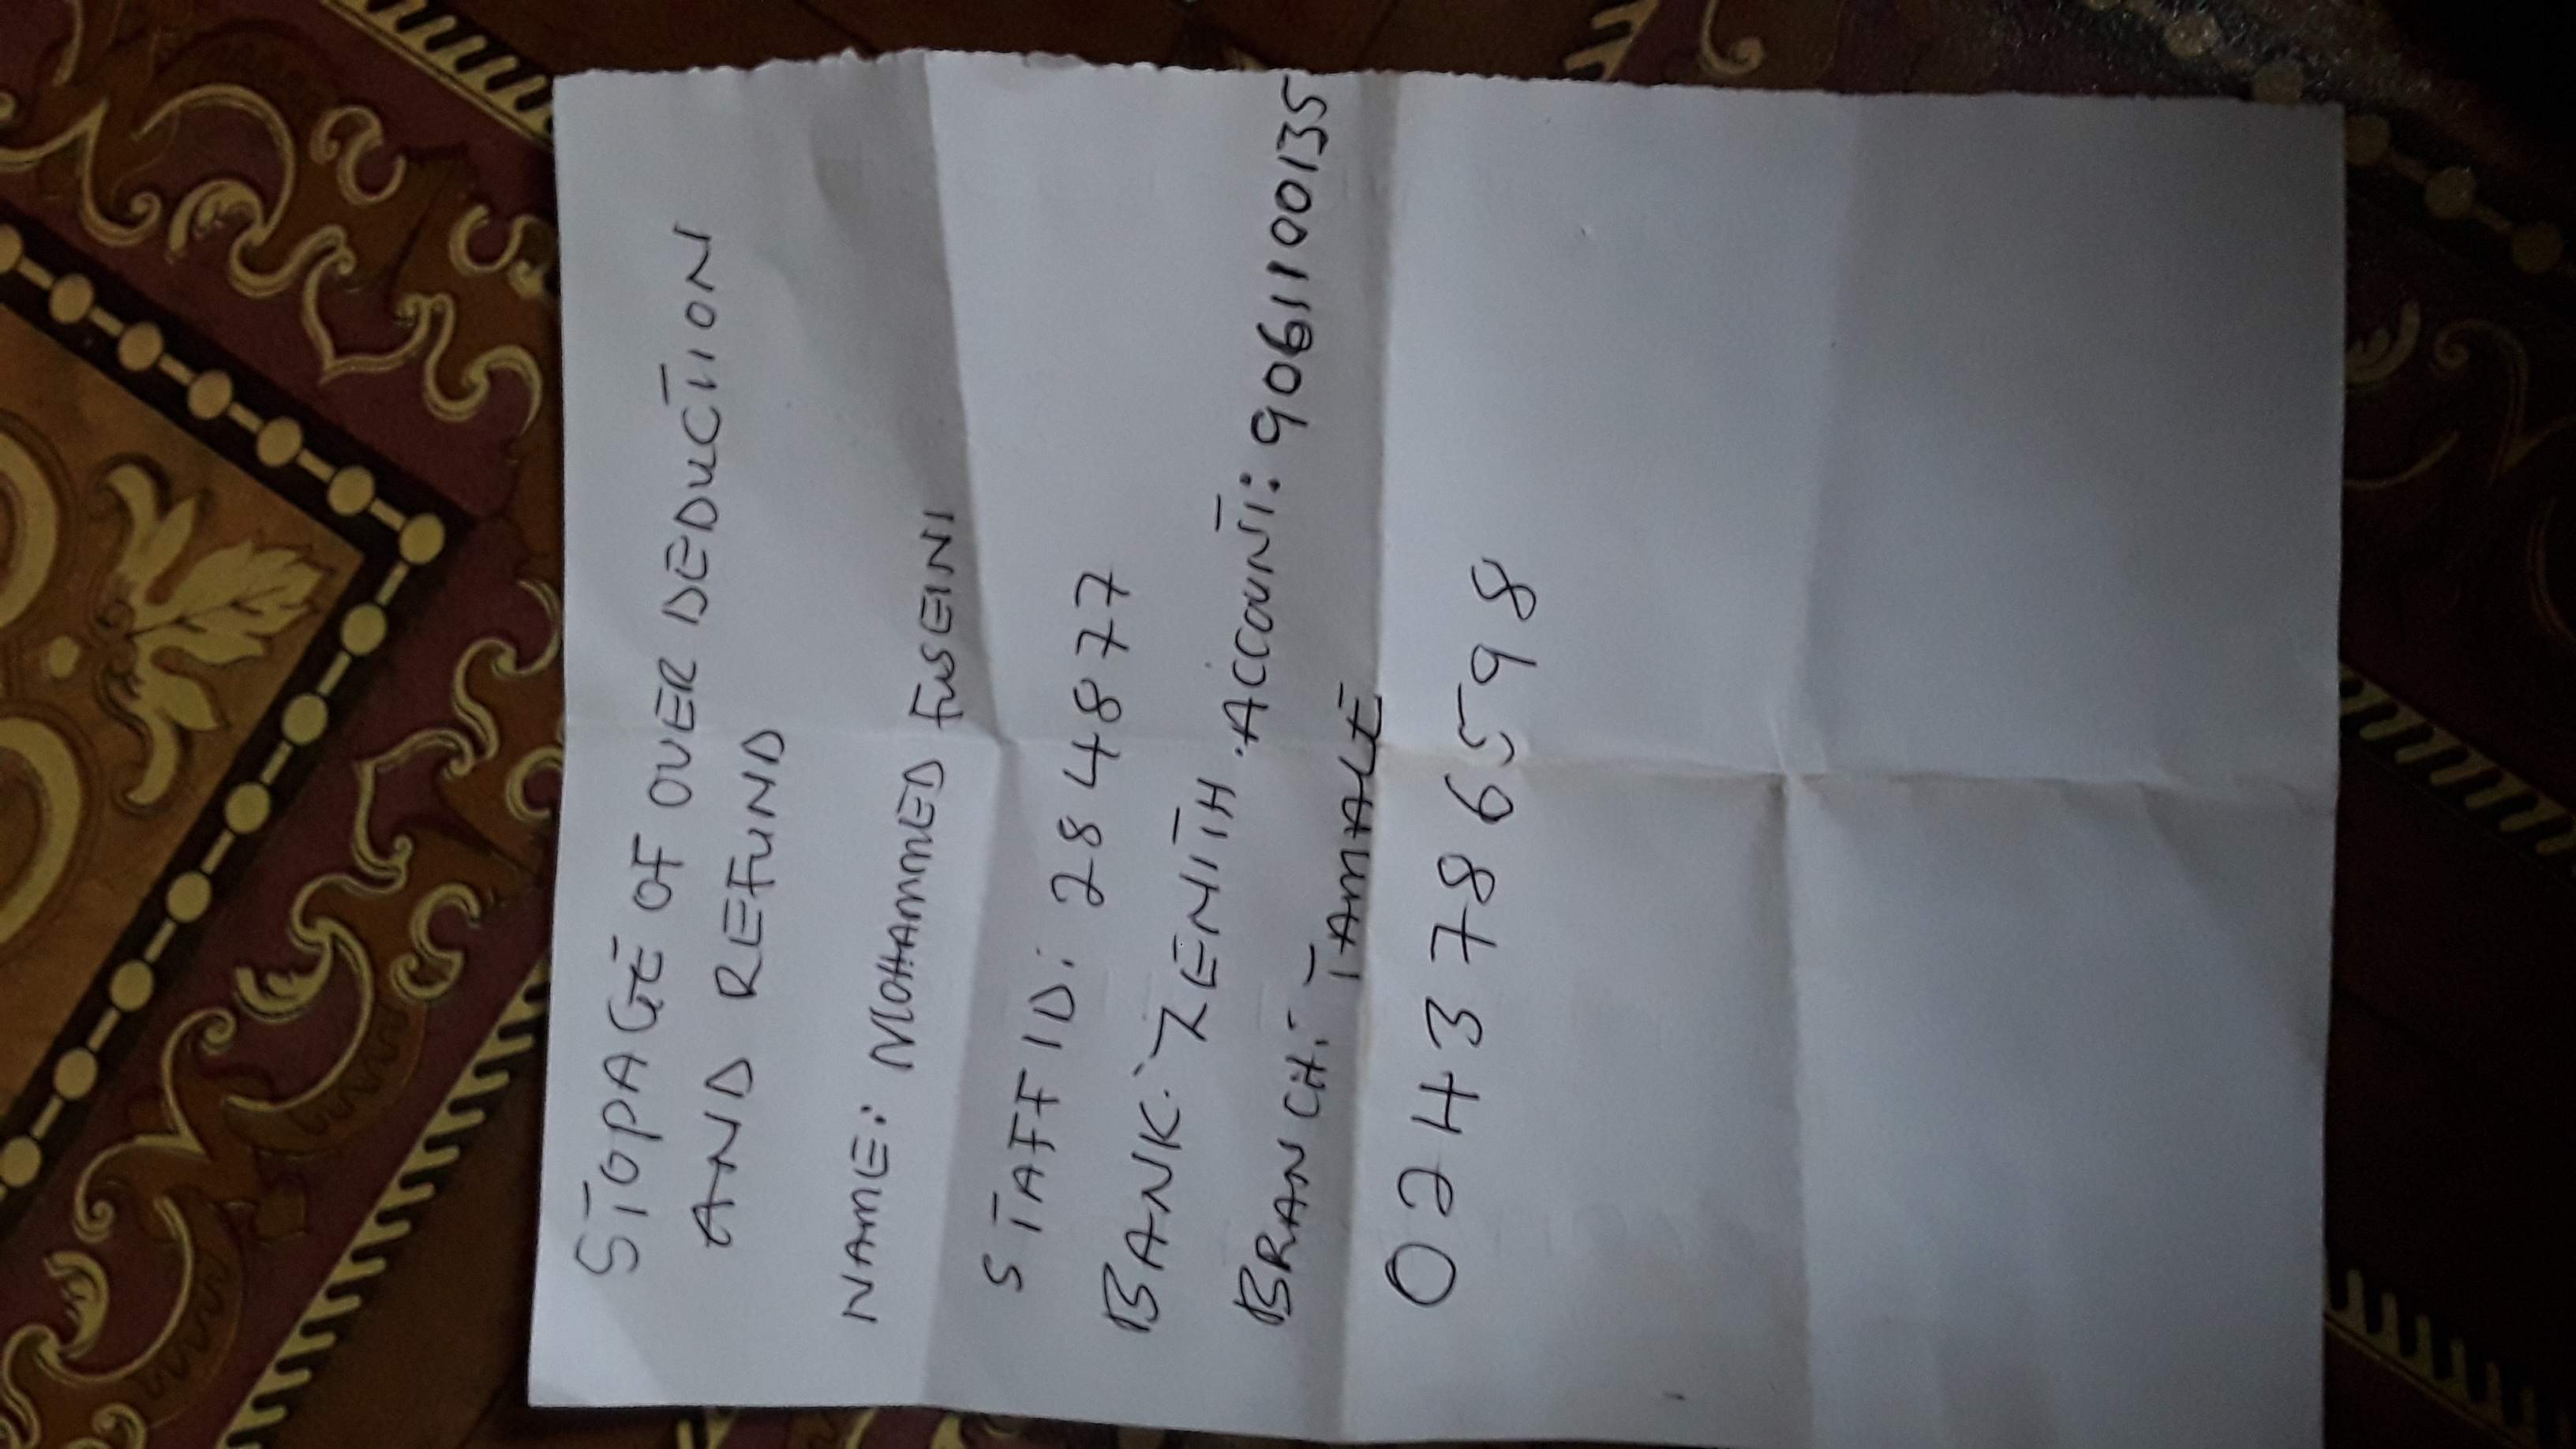 STOPAGE OF OVER DEDUCTION
AND REFUND
NAME: MOHAMMED FUSEINI
STAFF ID: 284877
BANK: ZENITH. ACCOUNT: 9061100135
BRANCH: TAMALE
0243786598